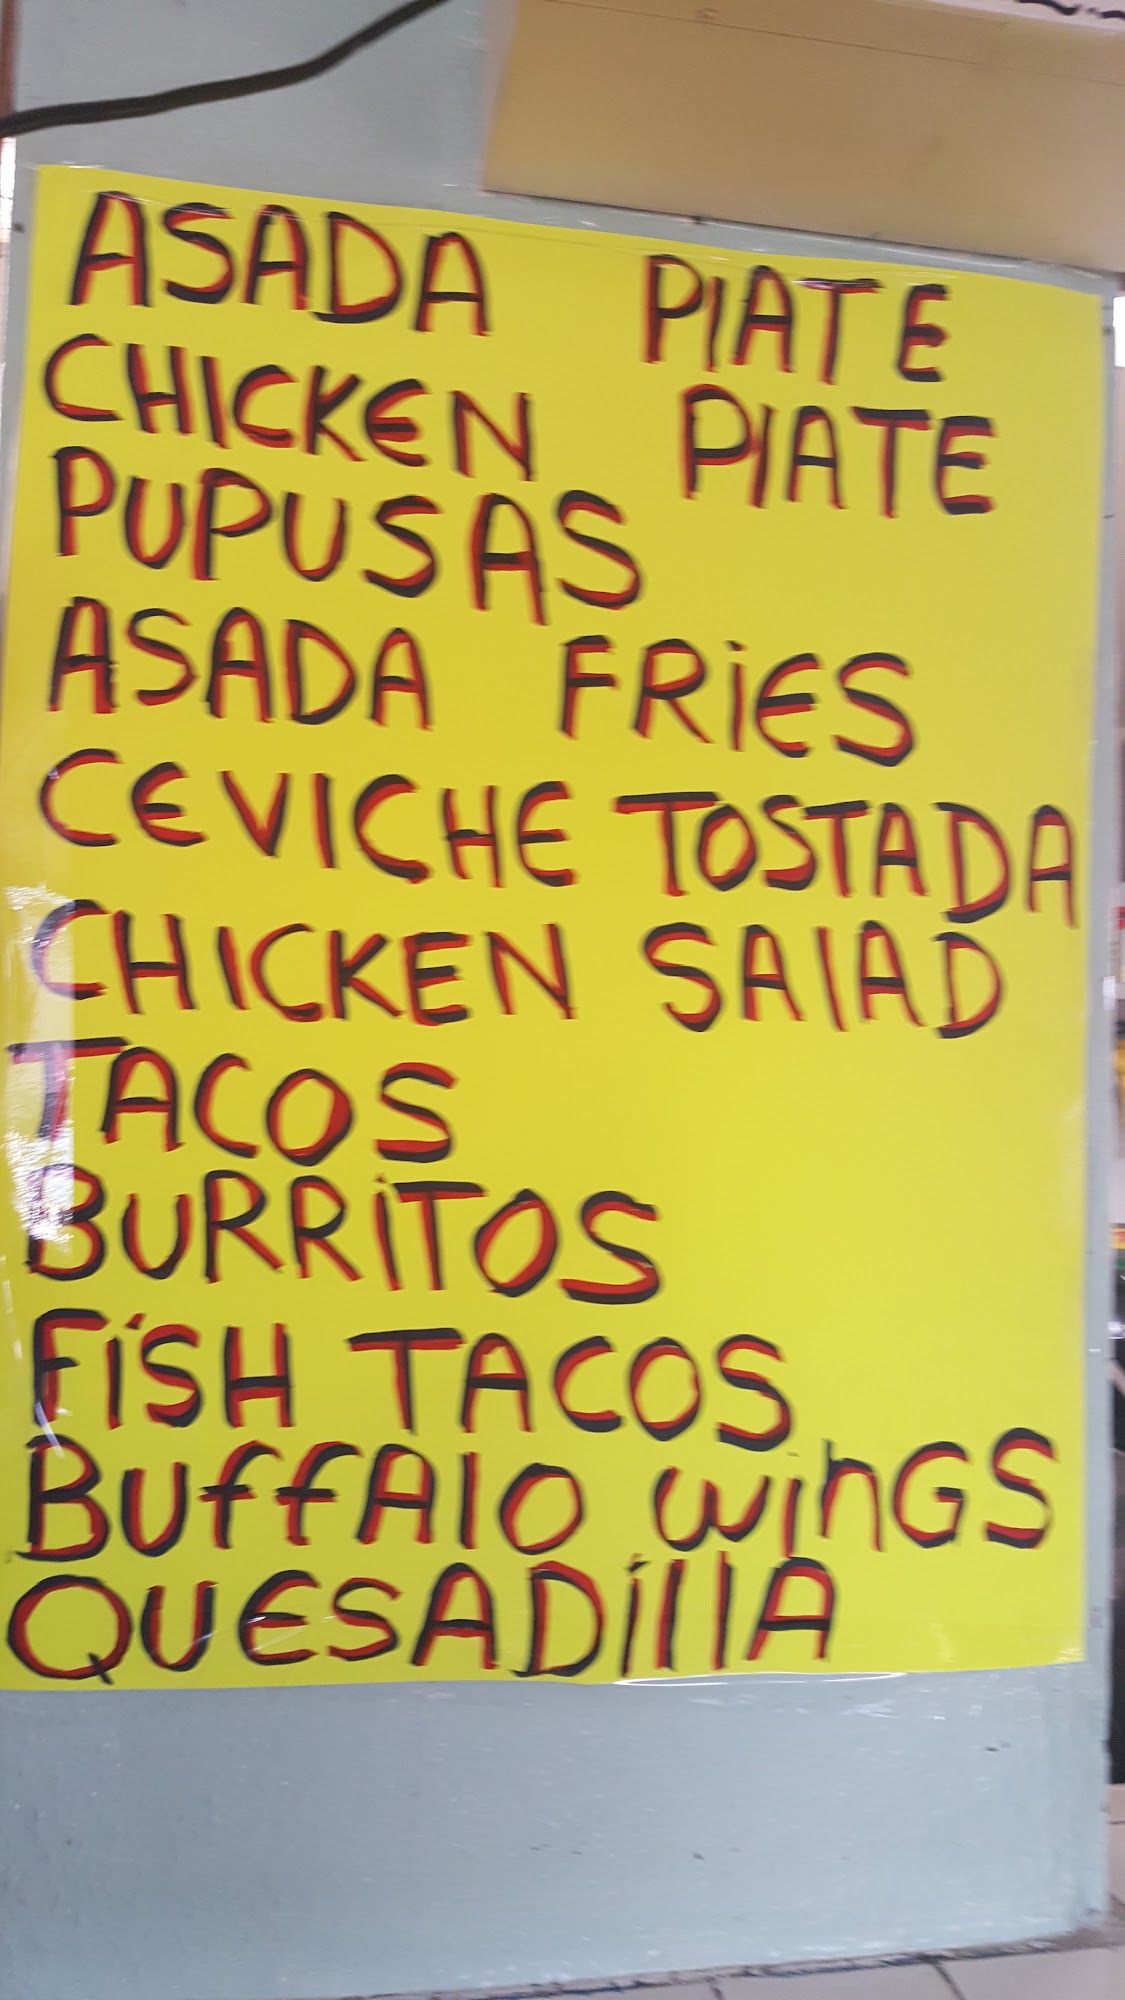 ASADA PlATE
CHICKEN PlATE
PUPUSAS
ASADA FRiES
CEVICHE TOSTADA
CHICKEN SAlAD
TACOS
BURRiTOS
FiSH TACOS
BUffAlO winGS
QUESADillA